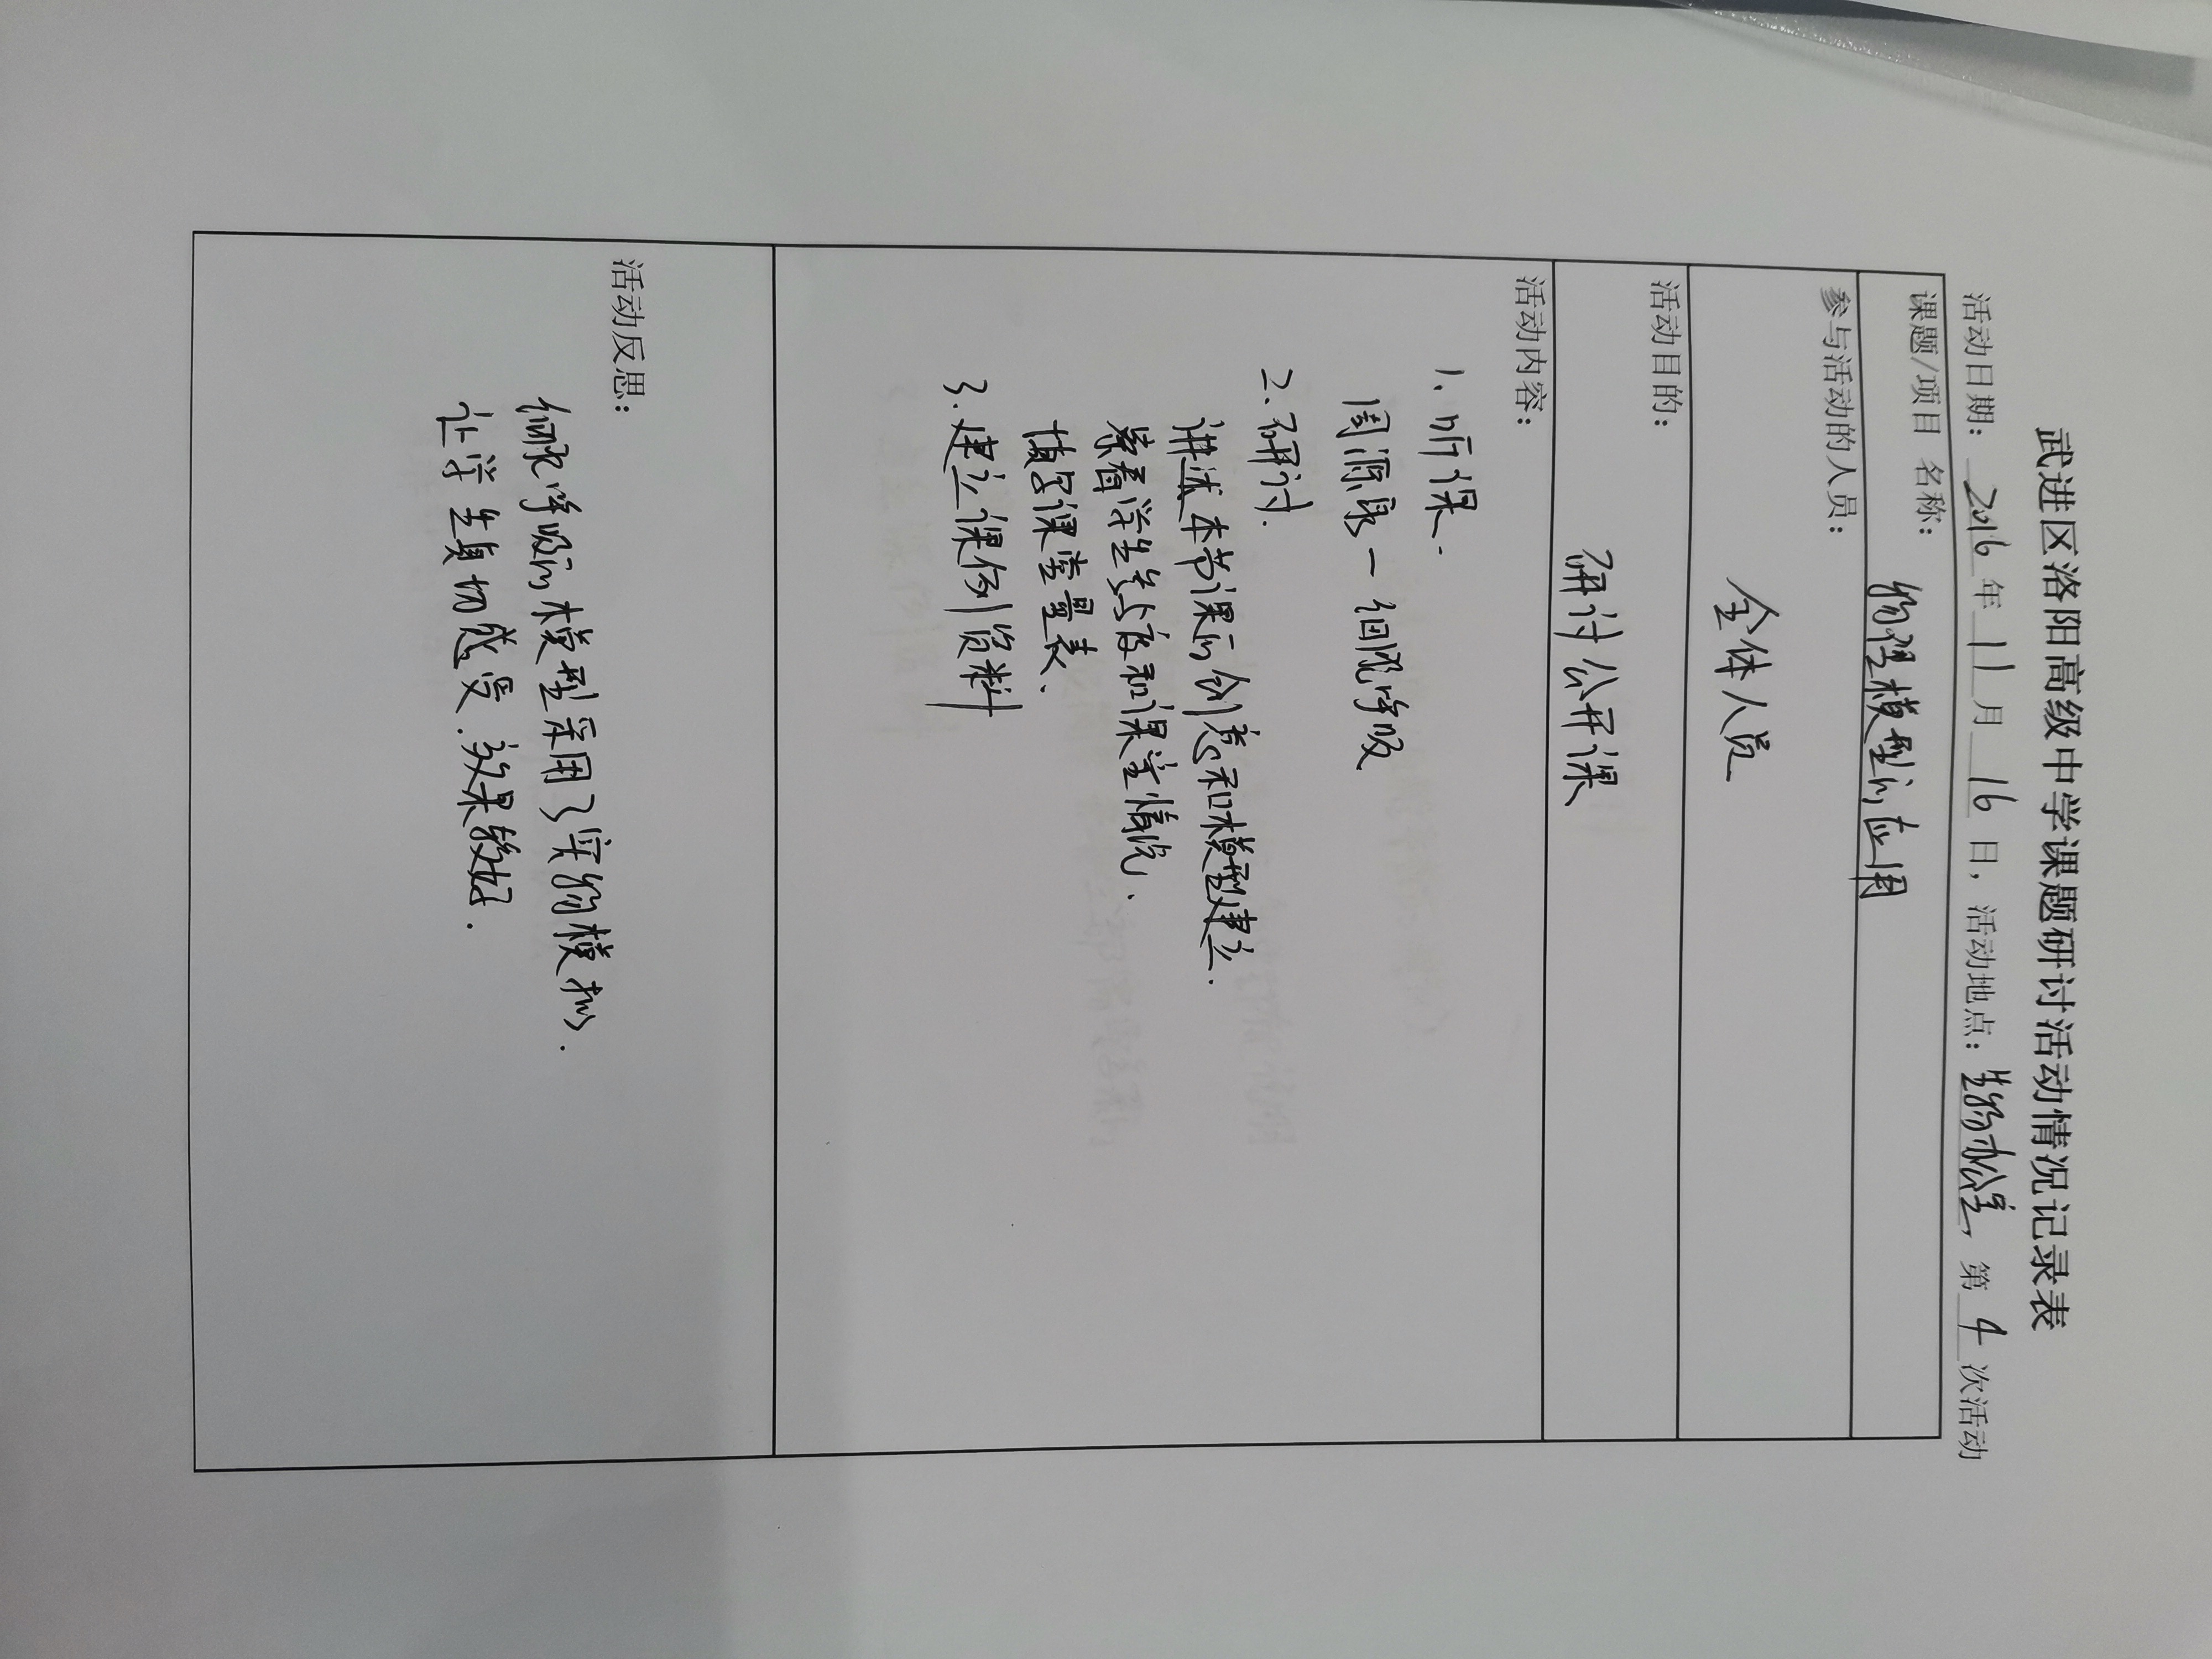 武进区洛阳高级中学课题研讨活动情况记录表
活动日期：2016年11月16日，活动地点：生物办公室，第4次活动
课题/项目 名称：物理模型的应用
参与活动的人员：
全体人员
活动目的：
研讨公开课
活动内容：
1、听课.
周源泉 — 细胞呼吸
2、研讨.
讲述本节课的创意和模型建立.
察看学生参与度和课堂情况、
填写课堂量表、
3、建立课例资料
活动反思：
细胞呼吸的模型采用了实物模拟.
让学生真切感受.效果较好.